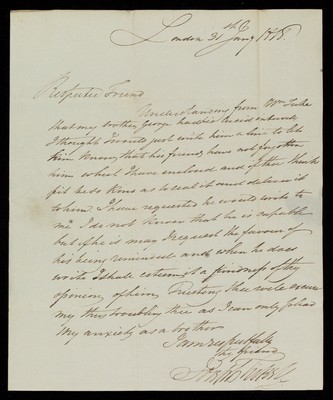 London 31st Jany 1818
Respected Friend
Understanding from Wm Tuke
that my brother George had
I thought I would just write him a line to let
him know that his friends have not forgotten
him which I have enclosed and if thou think
fit be so kind as to seal it and deliver it
to him I have requested he would write to
me I do not know that he is capable
but if he is may I request the favour of
his being reminded and when he does
write I shall esteem it a kindness of thy
opinion of him Trusting thou wilt excuse
my thus troubling thee as I can only plead
my anxiety as a brother
I am respectfully
thy friend